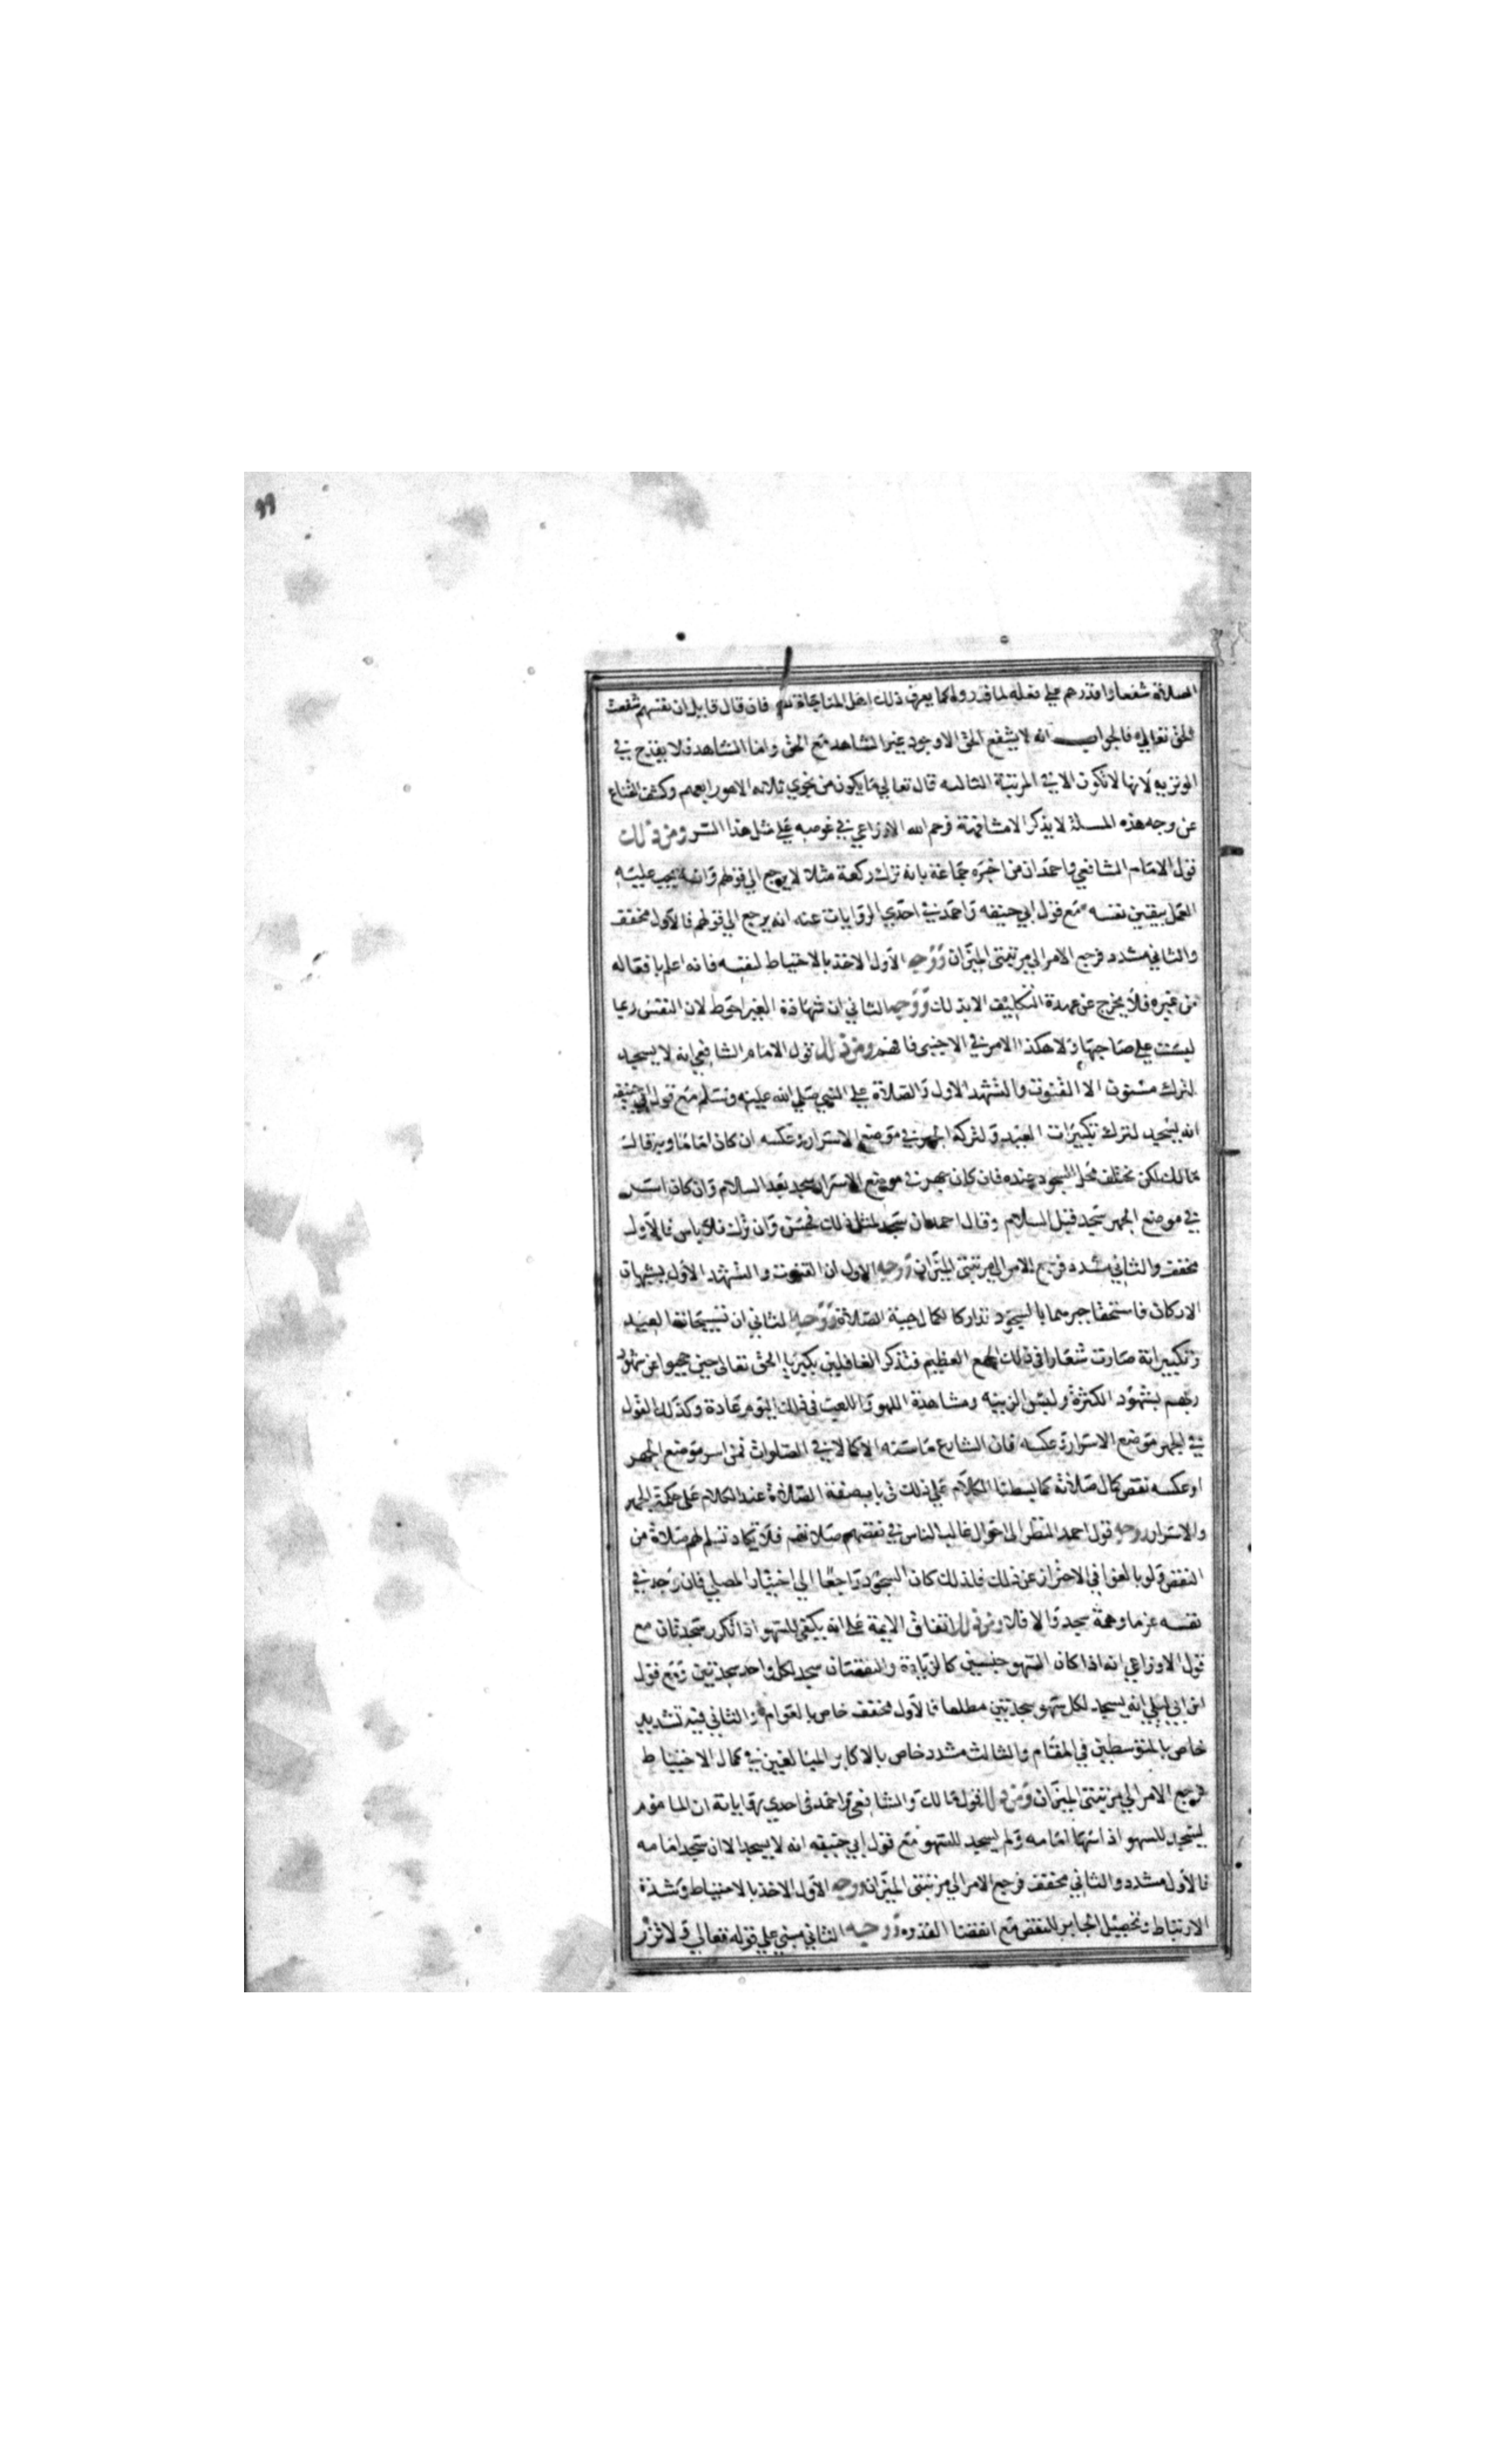 ٩٩
الصلاة شفعا واقدرهم على فعله لما قدروا كما يعرف ذلك اهل المناجاة لله فان قال قايل ان نفسهم شفعت
الحق تعالى فالجواب انه لا يشفع الحق الا وجود غير الشاهد مع الحق واما الشاهد فلا يقدح في
الوترية لانها لا تكون الا في المرتبة الثالثه قال تعالى ما يكون من نجوي ثلاثه الا هو رابعهم وكشف القناع
عن وجه هذه المسئلة لا يذكر الا مشافهة فرحم الله الاوزاعي في غوصه على مثل هذا السر ومن ذلك
قول الامام الشافعي واحمد ان من اخبره جماعة بانه ترك ركعة مثلا لا يرجع الي قولهم وانه يجب عليه
العمل بيقين نفسه مع قول ابي حنيفه واحمد في احدي الروايات عنه انه يرجع الي قولهم فالاول مخفف
والثاني مشدد فرجع الامر الي مرتبتي الميزان ووجه الاول الاخذ بالاحتياط لنفسه فانه اعلم بافعاله
من غيره فلا يخرج عن عهدة التكليف الا بذلك ووجه الثاني ان شهادة الغير احوط لان النفس ربما
لبست علي صاحبها ولا هكذا الامر في الاجنبي فافهم ومن ذلك قول الامام الشافعي انه لا يسجد
لترك مسنون الا القنوت والتشهد الاول والصلاة على النبي صلي الله عليه وسلم مع قول ابي حنيفه
انه يسجد لترك تكبيرات العيد ولتركه الجهر في موضع الاسرار وعكسه ان كان اماما وبه قال
مالك لكن يختلف محل السجود عنده فان كان جهر في موضع الاسرار سجد بعد السلام وان كان اسر
في موضع الجهر سجد قبل السلام وقال احمد ان سجد لمثل ذلك فحسن وان ترك فلا باس فالاول
مخفف والثاني مشدد فرجع الامر الي مرتبتي الميزان ووجه الاول ان القنوت والتشهد الاول يشبهان
الاركان فاستحقا جبرهما بالسجود تداركا لكمال هيئة الصلاة ووجه الثاني ان تسبيحات العيد
وتكبيراته صارت شعارا في ذلك الجمع العظيم فتذكر الغافلين بكبرياء الحق تعالى حين حجبوا عن شهود
ربهم بشهود الكثرة ولبس الزينه ومشاهدة اللهو واللعب في ذلك اليوم عادة وكذلك القول
في الجهر موضع الاسرار وعكسه فان الشارع ما سنه الا كمالا في الصلوات فمن اسر موضع الجهر
او عكسه نقص كمال صلاته كما بسطنا الكلام علي ذلك في باب صفة الصلاة عند الكلام على حكمة الجهر
والاسرار ووجه قول احمد النظر الى احوال غالب الناس في نقصهم صلاتهم فلا تكاد تسلم لهم صلاة من
النقص ولو بالغوا في الاحتراز عن ذلك فلذلك كان السجود راجعا الي اختيار المصلي فان وجد في
نفسه عزما وهمة سجد والا فلا ومن ذلك اتفاق الايمة على انه يكفي للسهو اذا تكرر سجدتان مع
قول الاوزاعي انه اذا كان السهو جنسين كالزيادة والنقصان سجد لكل واحد سجدتين ومع قول
ابن ابي ليلي انه يسجد لكل سهو سجدتين مطلقا فالاول مخفف خاص بالعوام والثاني فيه تشديد
خاص بالمتوسطين في المقام والثالث مشدد خاص بالاكابر المبالغين في كمال الاحتياط
فرجع الامر الي مرتبتي الميزان ومن ذلك قول مالك والشافعي واحمد في احدي رواياته ان الماموم
يسجد للسهو اذا سها امامه ولم يسجد للسهو مع قول ابي حنيفه انه لا يسجد الا ان سجد امامه
فالاول مشدد والثاني مخفف فرجع الامر الي مرتبتي الميزان ووجه الاول الاخذ بالاحتياط وشدة
الارتباط وتحصيل الجابر للنقص مع القدوه ووجه الثاني مبني علي قوله تعالي ولا تزر